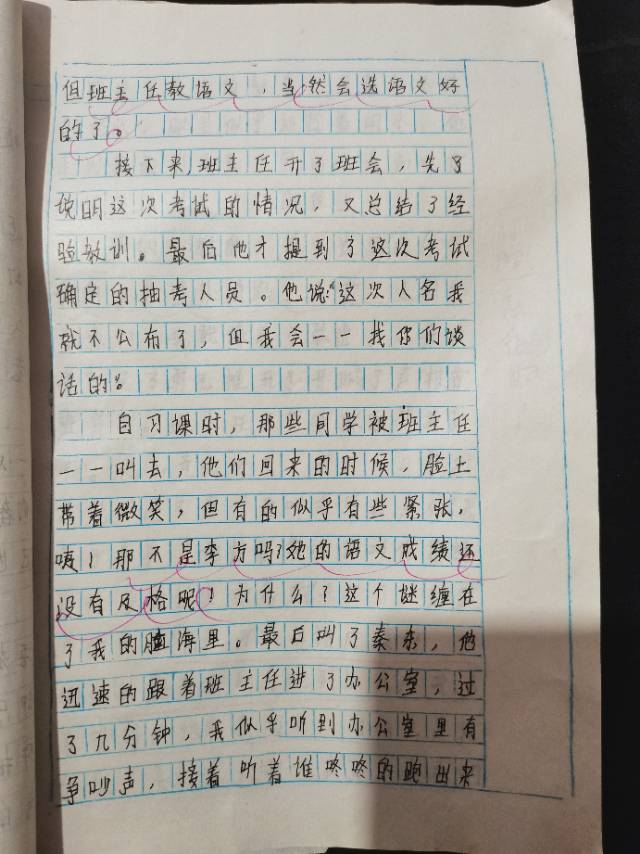 但班主任教语文,当然会选语文好
的了。
接下来,班主任开了班会,先了
说明这次考试的情况,又总结了经
验教训。最后他才提到了这次考试
确定的抽考人员。他说:“这次人名我
就不公布了,但我会一一找你们谈
话的。
自习课时,那些同学被班主任
一一叫去,他们回来的时候,脸上
带着微笑,但有的似乎有些紧张,
咦!那不是李方吗?她的语文成绩还
没有及格呢!为什么?这个谜缠在
了我的脑海里。最后叫了秦东,他
迅速的跟着班主任进了办公室,过
了几分钟,我似乎听到办公室里有
争吵声,接着听着谁咚咚的跑出来